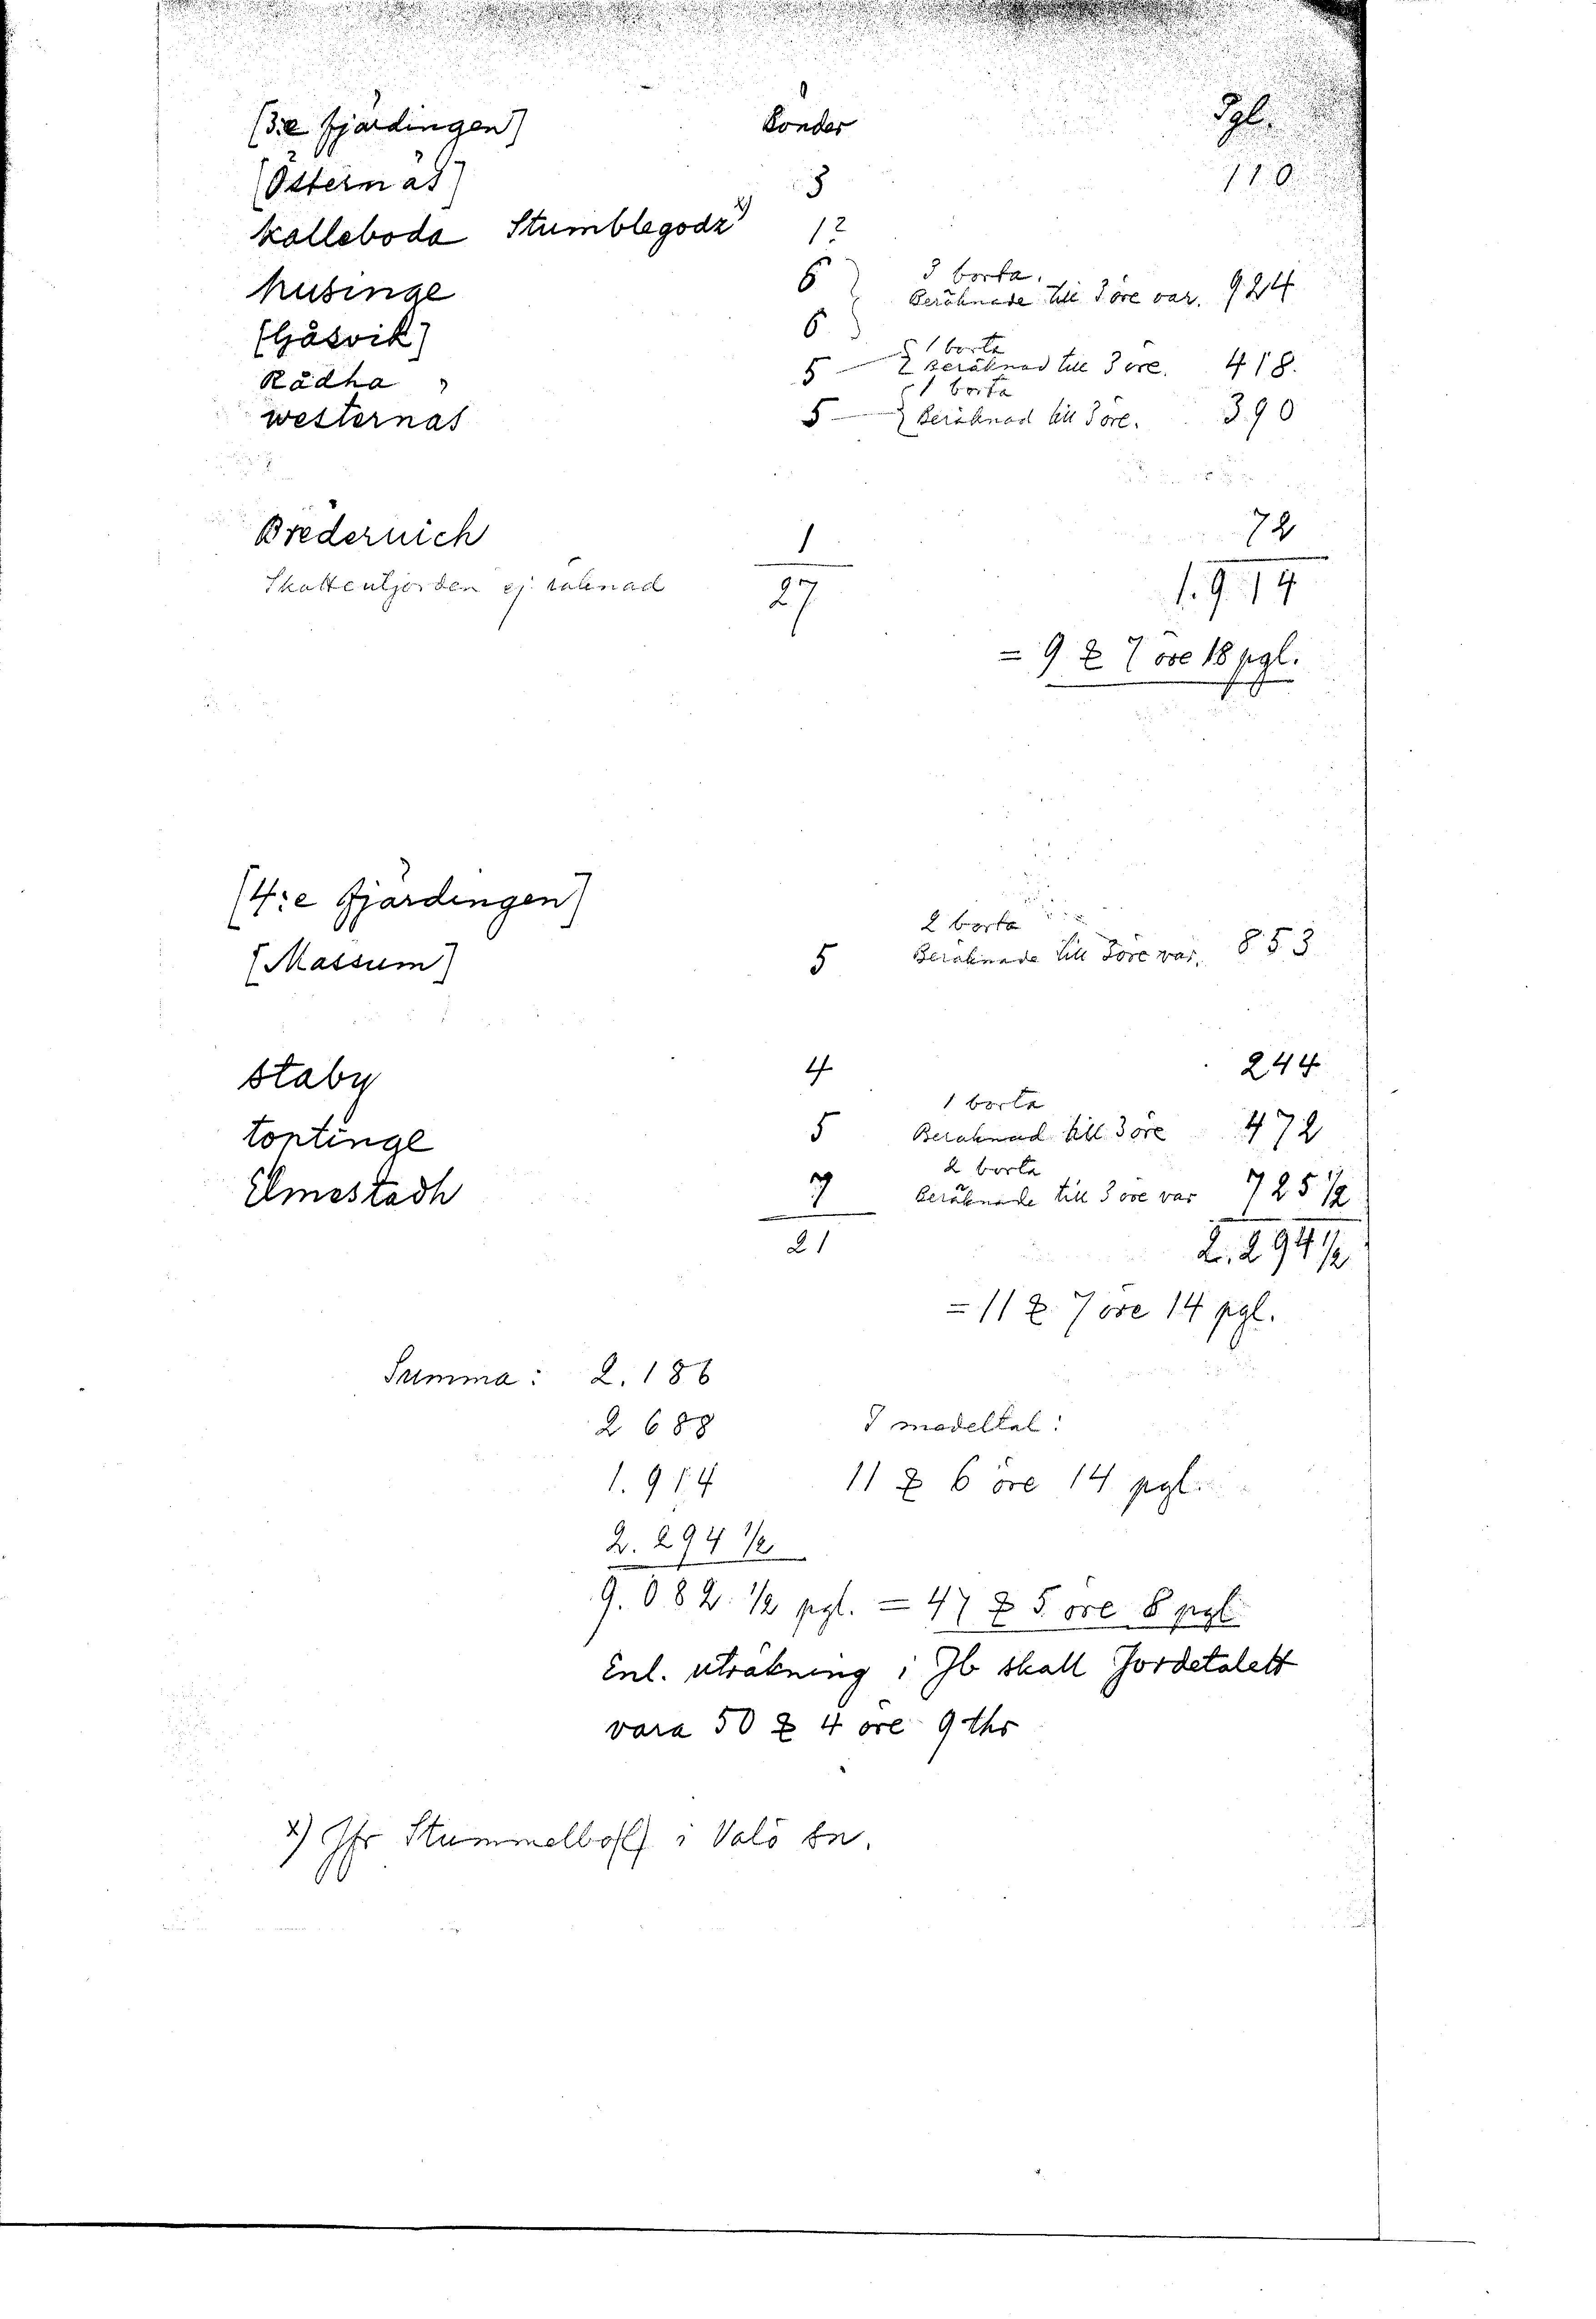 [3:e fjärdingen] Bönder Pgl.
[Östernäs] 3 110
kalleboda Stumblegodz x) 1?
husinge 6 3 borta. Beräknade till 3 öre var. 924
[Gåsvik] 6
Rådha " 5 1 borta Beräknad till 3 öre. 418.
westernas 5 1 borta Beräknad till 3 öre. 390
Brederuich 1 72
Skatteutjorden ej räknad 27 1.914
= 9 ꝶ 7 öre 18 pgl.
[4:e fjärdingen]
[Massum] 5 2 borta Beräknade till 3 öre var. 853
staby 4 244
toptinge 5 1 borta Beräknad till 3 öre 472
Elmestadh 7 2 borta Beräknade till 3 öre var 725 1/2
21 2.294 1/2
= 11 ꝶ 7 öre 14 pgl.
Summa: 2.186
2 688 I medeltal:
1.914 11 ꝶ 6 öre 14 pgl.
2.294 1/2
9.082 1/2 pgl. = 47 ꝶ 5 öre 8 pgl
Enl. uträkning i Jb skall Jordetalett
vara 50 ꝶ 4 öre 9 thr
x) Jfr Stummelbo(l) i Valö sn.